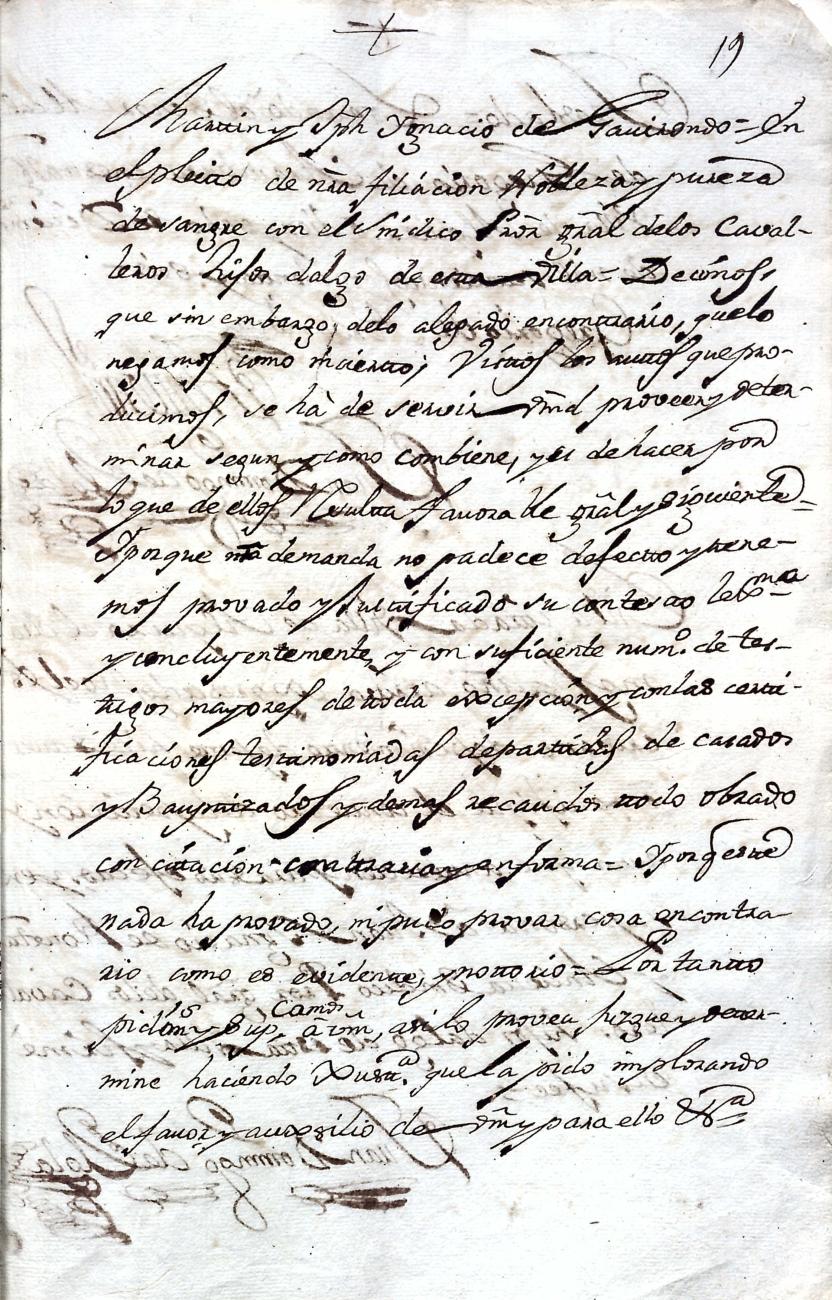 19
Martin y Jph Ygnacio de Gavirondo = En
el pleito de nrã filiacion Nobleza y pureza
de sangre con el Sindico Prõr grãl delos Caval-
leros hijos dalgo de esta Villa = Decimos,
que sin embargo delo alegado encontrario, quelo
negamos como incierto; Vistos los auttos que pro-
ducimos, se hà de servir Vmd proveer y deter-
minar segun y como combiene, y es de hacer por
loque de ellos Resulta favorable grãl y siguiente =
Y porque nrã demanda no padece defectto y tene-
mos provado y Justificado su contesto
y concluyentemente, y con suficiente numº. de tes-
tigos mayores de ttoda excepcion y conlas certi-
ficaciones testimoniadas departidas de casados
y Bauptizados y demas recaudos ttodo obrado
con cittacion conttraria y enforma = Y porq este
nada ha provado, ni pudo provar cosa encontra-
rio como es evidente, y nottorio = Por tantto
pidimos y Supcamos à vm, asi lo provea juzgue y deter-
mine haciendo Justª. que la pido implorando
el favor y auxsilio de Vm y para ello &ª =